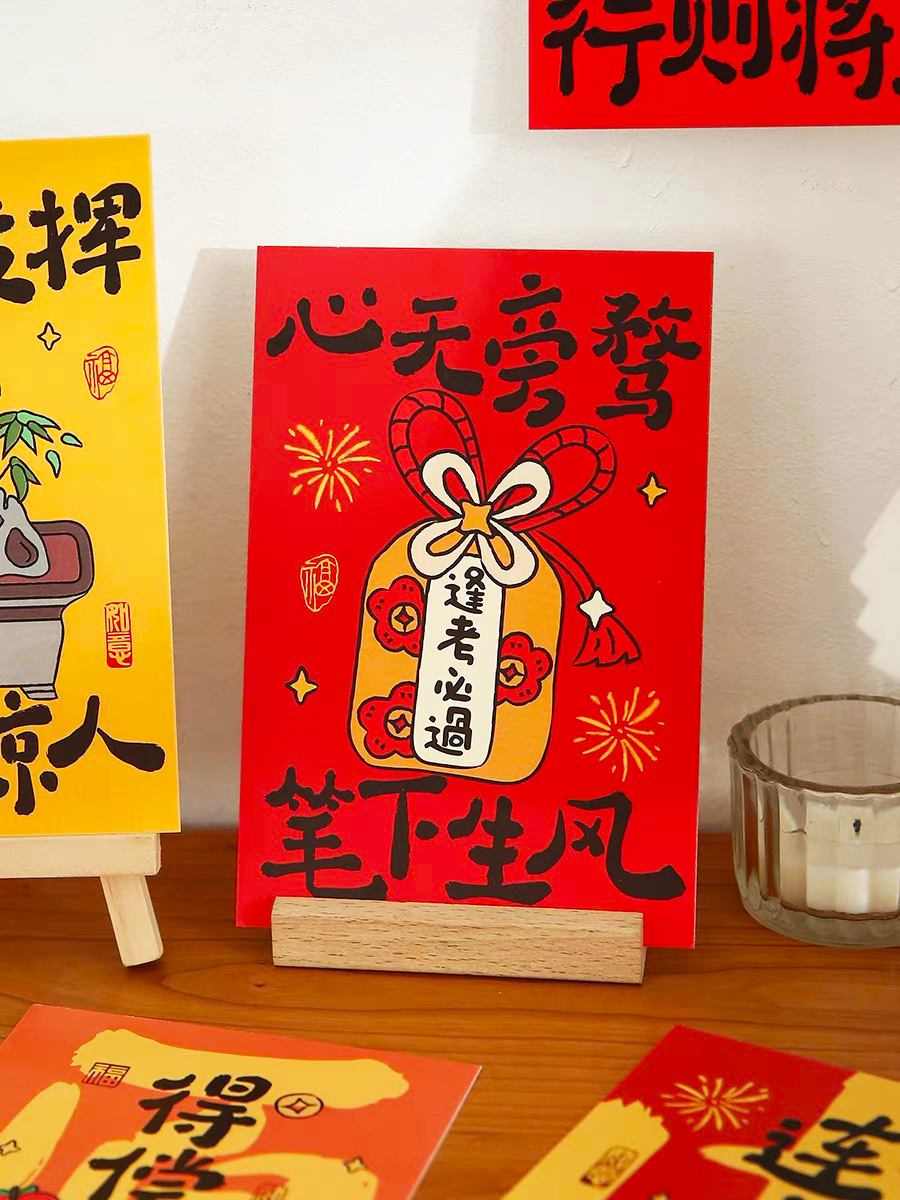 行则将
发挥
福
如意
惊人
心无旁骛
福
逢考必過
笔下生风
福
得偿
连